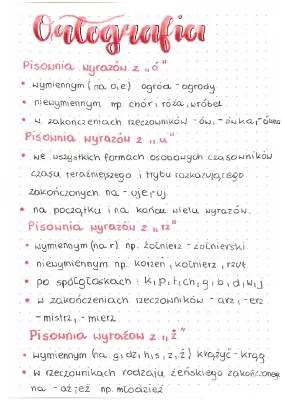 Ortografia
Pisownia wyrazów z „ó"
• wymiennym (na o, e) ogród - ogrody
• niewymiennym np. chór, róża, wróbel
• w zakończeniach rzeczowników - ów, - ówka, - ówna
Pisownia wyrazów z „u"
• we wszystkich formach osobowych czasowników
czasu teraźniejszego i trybu rozkazującego
zakończonych na - uję, uj.
• na początku i na końcu wielu wyrazów.
Pisownia wyrazów z „rz"
• wymiennym (na r) np. żołnierz - żołnierski
• niewymiennym np. korzeń, kołnierz, rzut
• po spółgłoskach : k, p, t, ch, g, b, d, w, j
• w zakończeniach rzeczowników - arz, - erz
- mistrz, - mierz
Pisownia wyrazów z „ż"
• wymiennym (na: g, dz, h, s, z, ź) krążyć - krąg
• w rzeczownikach rodzaju żeńskiego zakończonego
na - aż, eż np. młodzież